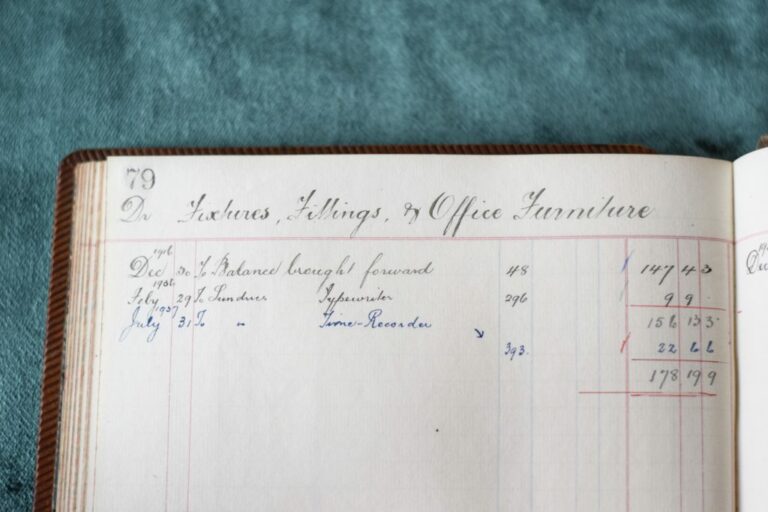 79
Dr Fixtures, Fittings, & Office Furniture
Dec 30 To Balance brought forward 48 147 4 3
1936
Feby 29 To Sundries Typewriter 296 9 9 -
1937
July 31 To " Time-Recorder
156 13 3
393. 22 6 6
178 19 9